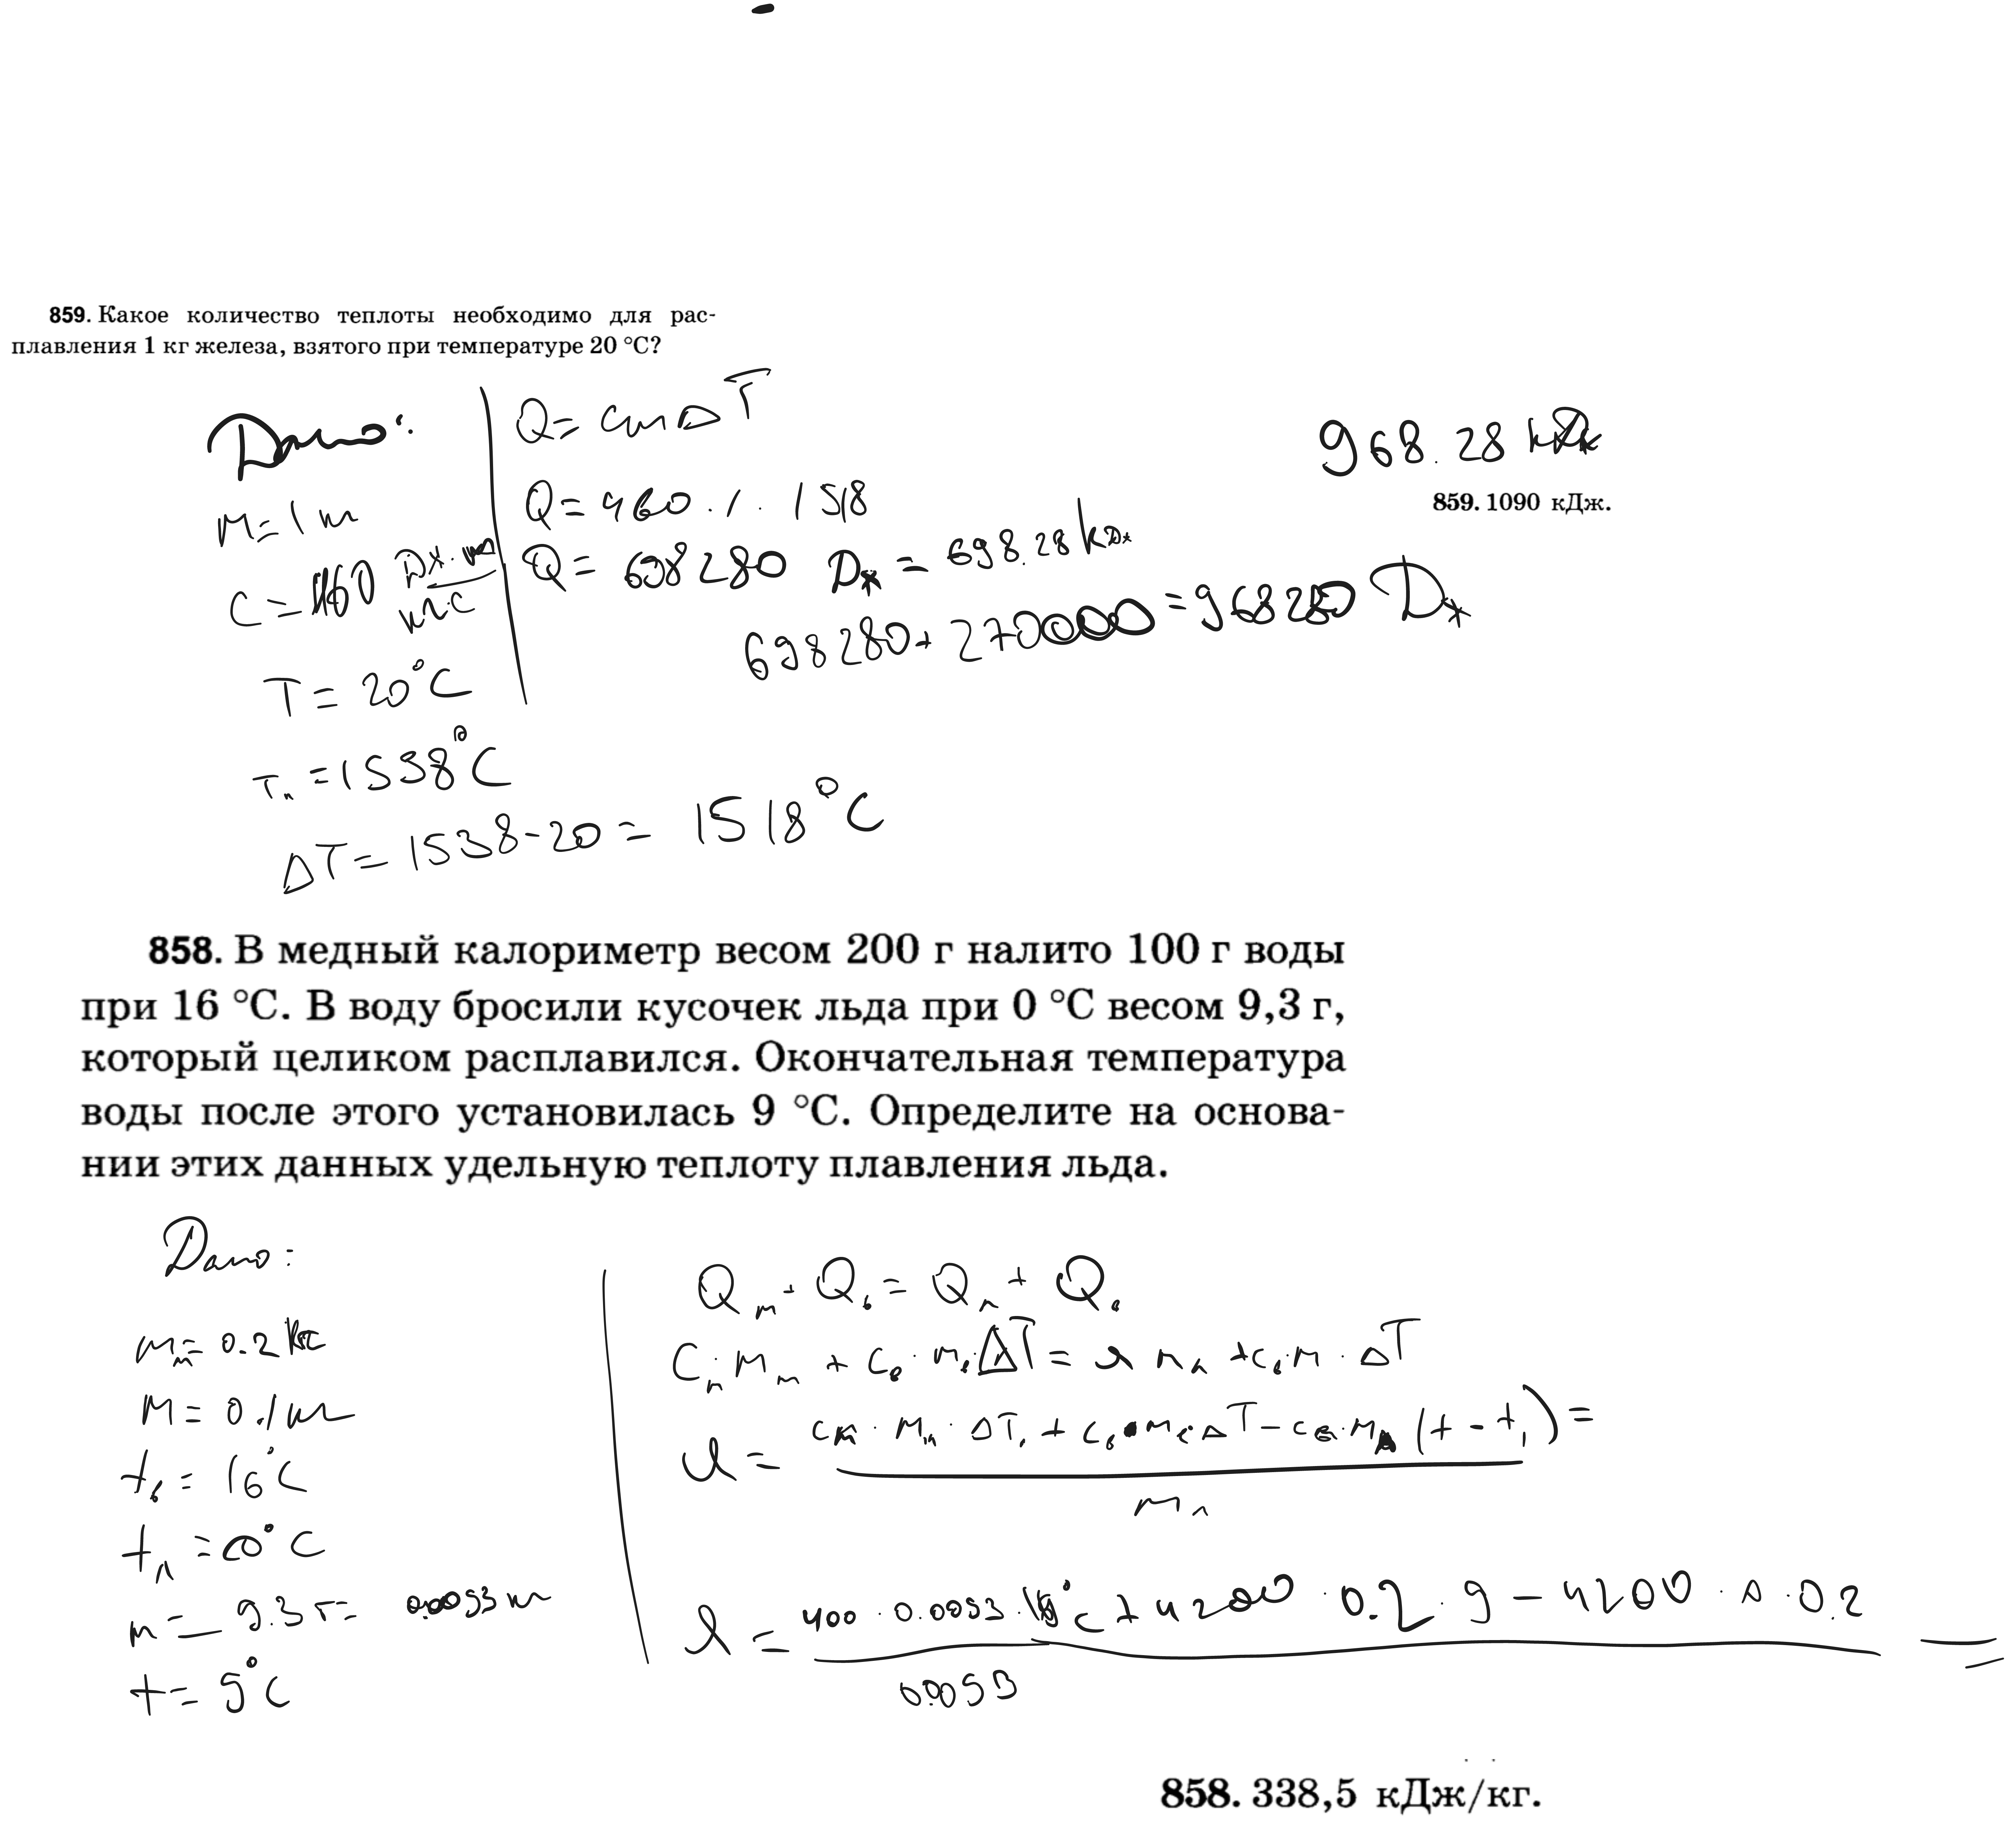 859. Какое количество теплоты необходимо для рас-
плавления 1 кг железа, взятого при температуре 20 °С?
Дано:
m = 1 кг
C = 460 Дж
кг·С
T = 20°C
Tп = 1538°C
ΔT = 1538-20 = 1518°C
Q = cmΔT
Q = 460 · 1 · 1518
Q = 698280 Дж = 698.28 кДж
698280 + 270000 = 968280 Дж
968.28 кДж
859. 1090 кДж.
858. В медный калориметр весом 200 г налито 100 г воды
при 16 °С. В воду бросили кусочек льда при 0 °С весом 9,3 г,
который целиком расплавился. Окончательная температура
воды после этого установилась 9 °С. Определите на основа-
нии этих данных удельную теплоту плавления льда.
Дано:
mм = 0.2 кг
m = 0.1 кг
tв = 16°C
tл = 0°C
m = 9.3 г = 0.0093 кг
t = 9°C
Qм + Qв = Qл + Qв
Cм·mм + cв·mв·ΔT = λ mл + cв·m·ΔT
λ = cм·mм·ΔT, + cв·mвΔT - cв·mл (t - t₁) =
mл
λ = 400 · 0.0093 · °C + 4200 · 0.2 · 9 - 4200 · · 0.2 =
0.0093
858. 338,5 кДж/кг.